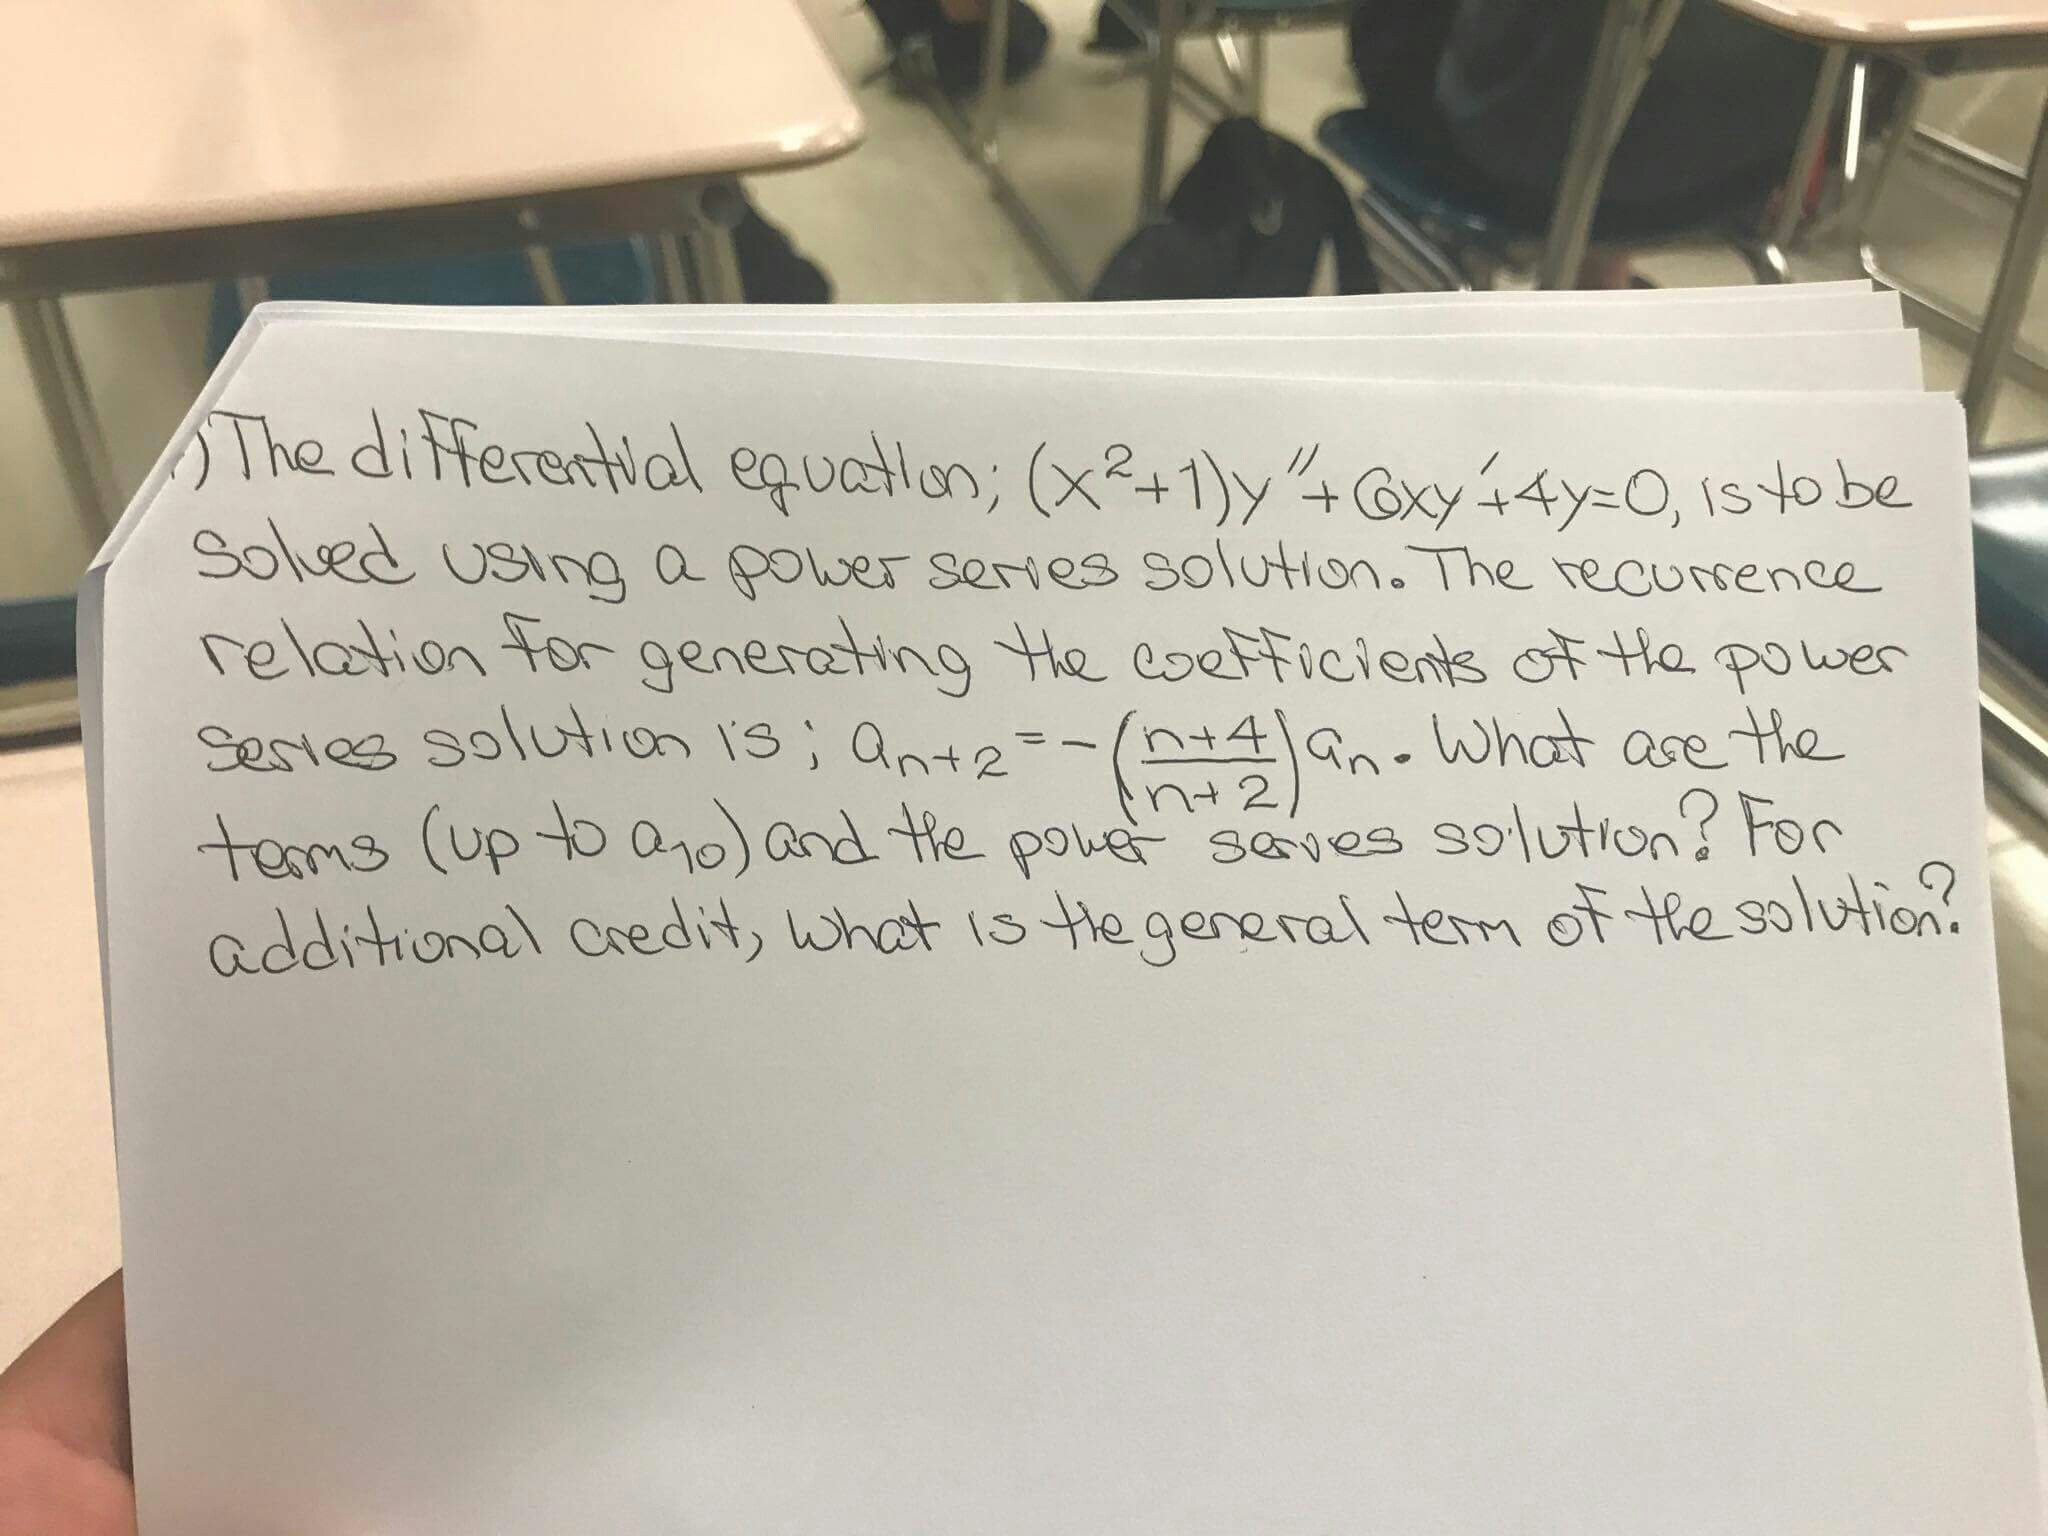 .) The differential equation; (x²+1)y″+6xy′+4y=0, is to be
solved using a power series solution. The recurrence
relation for generating the coefficients of the power
series solution is; aₙ₊₂=-(n+4/n+2)aₙ. What are the
terms (up to a₁₀) and the power series solution? For
additional credit, what is the general term of the solution?